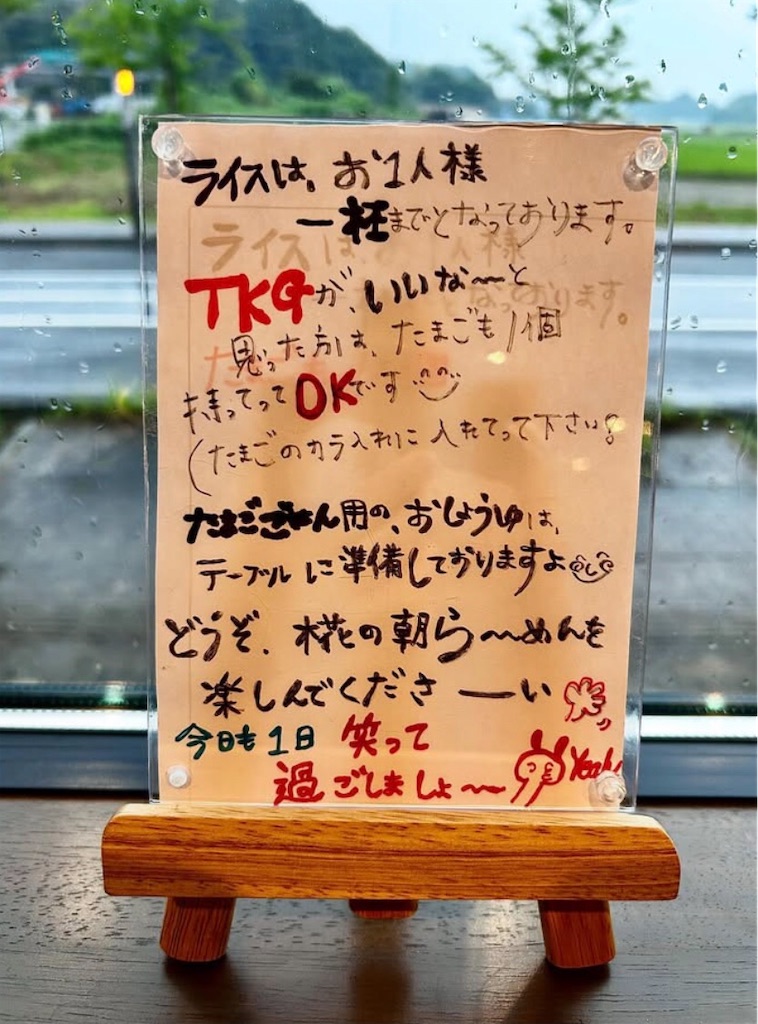 ライスは、お1人様
一杯までとなっております。
TKGが、いいな〜と
思った方は、たまごも1個
持ってってOKです
(たまごのカラ入れに入れてって下さい!
たまごごはん用の、おしょうゆは、
テーブルに準備しておりますよ
どうぞ、椛の朝ら〜めんを
楽しんでくださーい
今日も1日 笑って
過ごしましょ〜 Yeah!